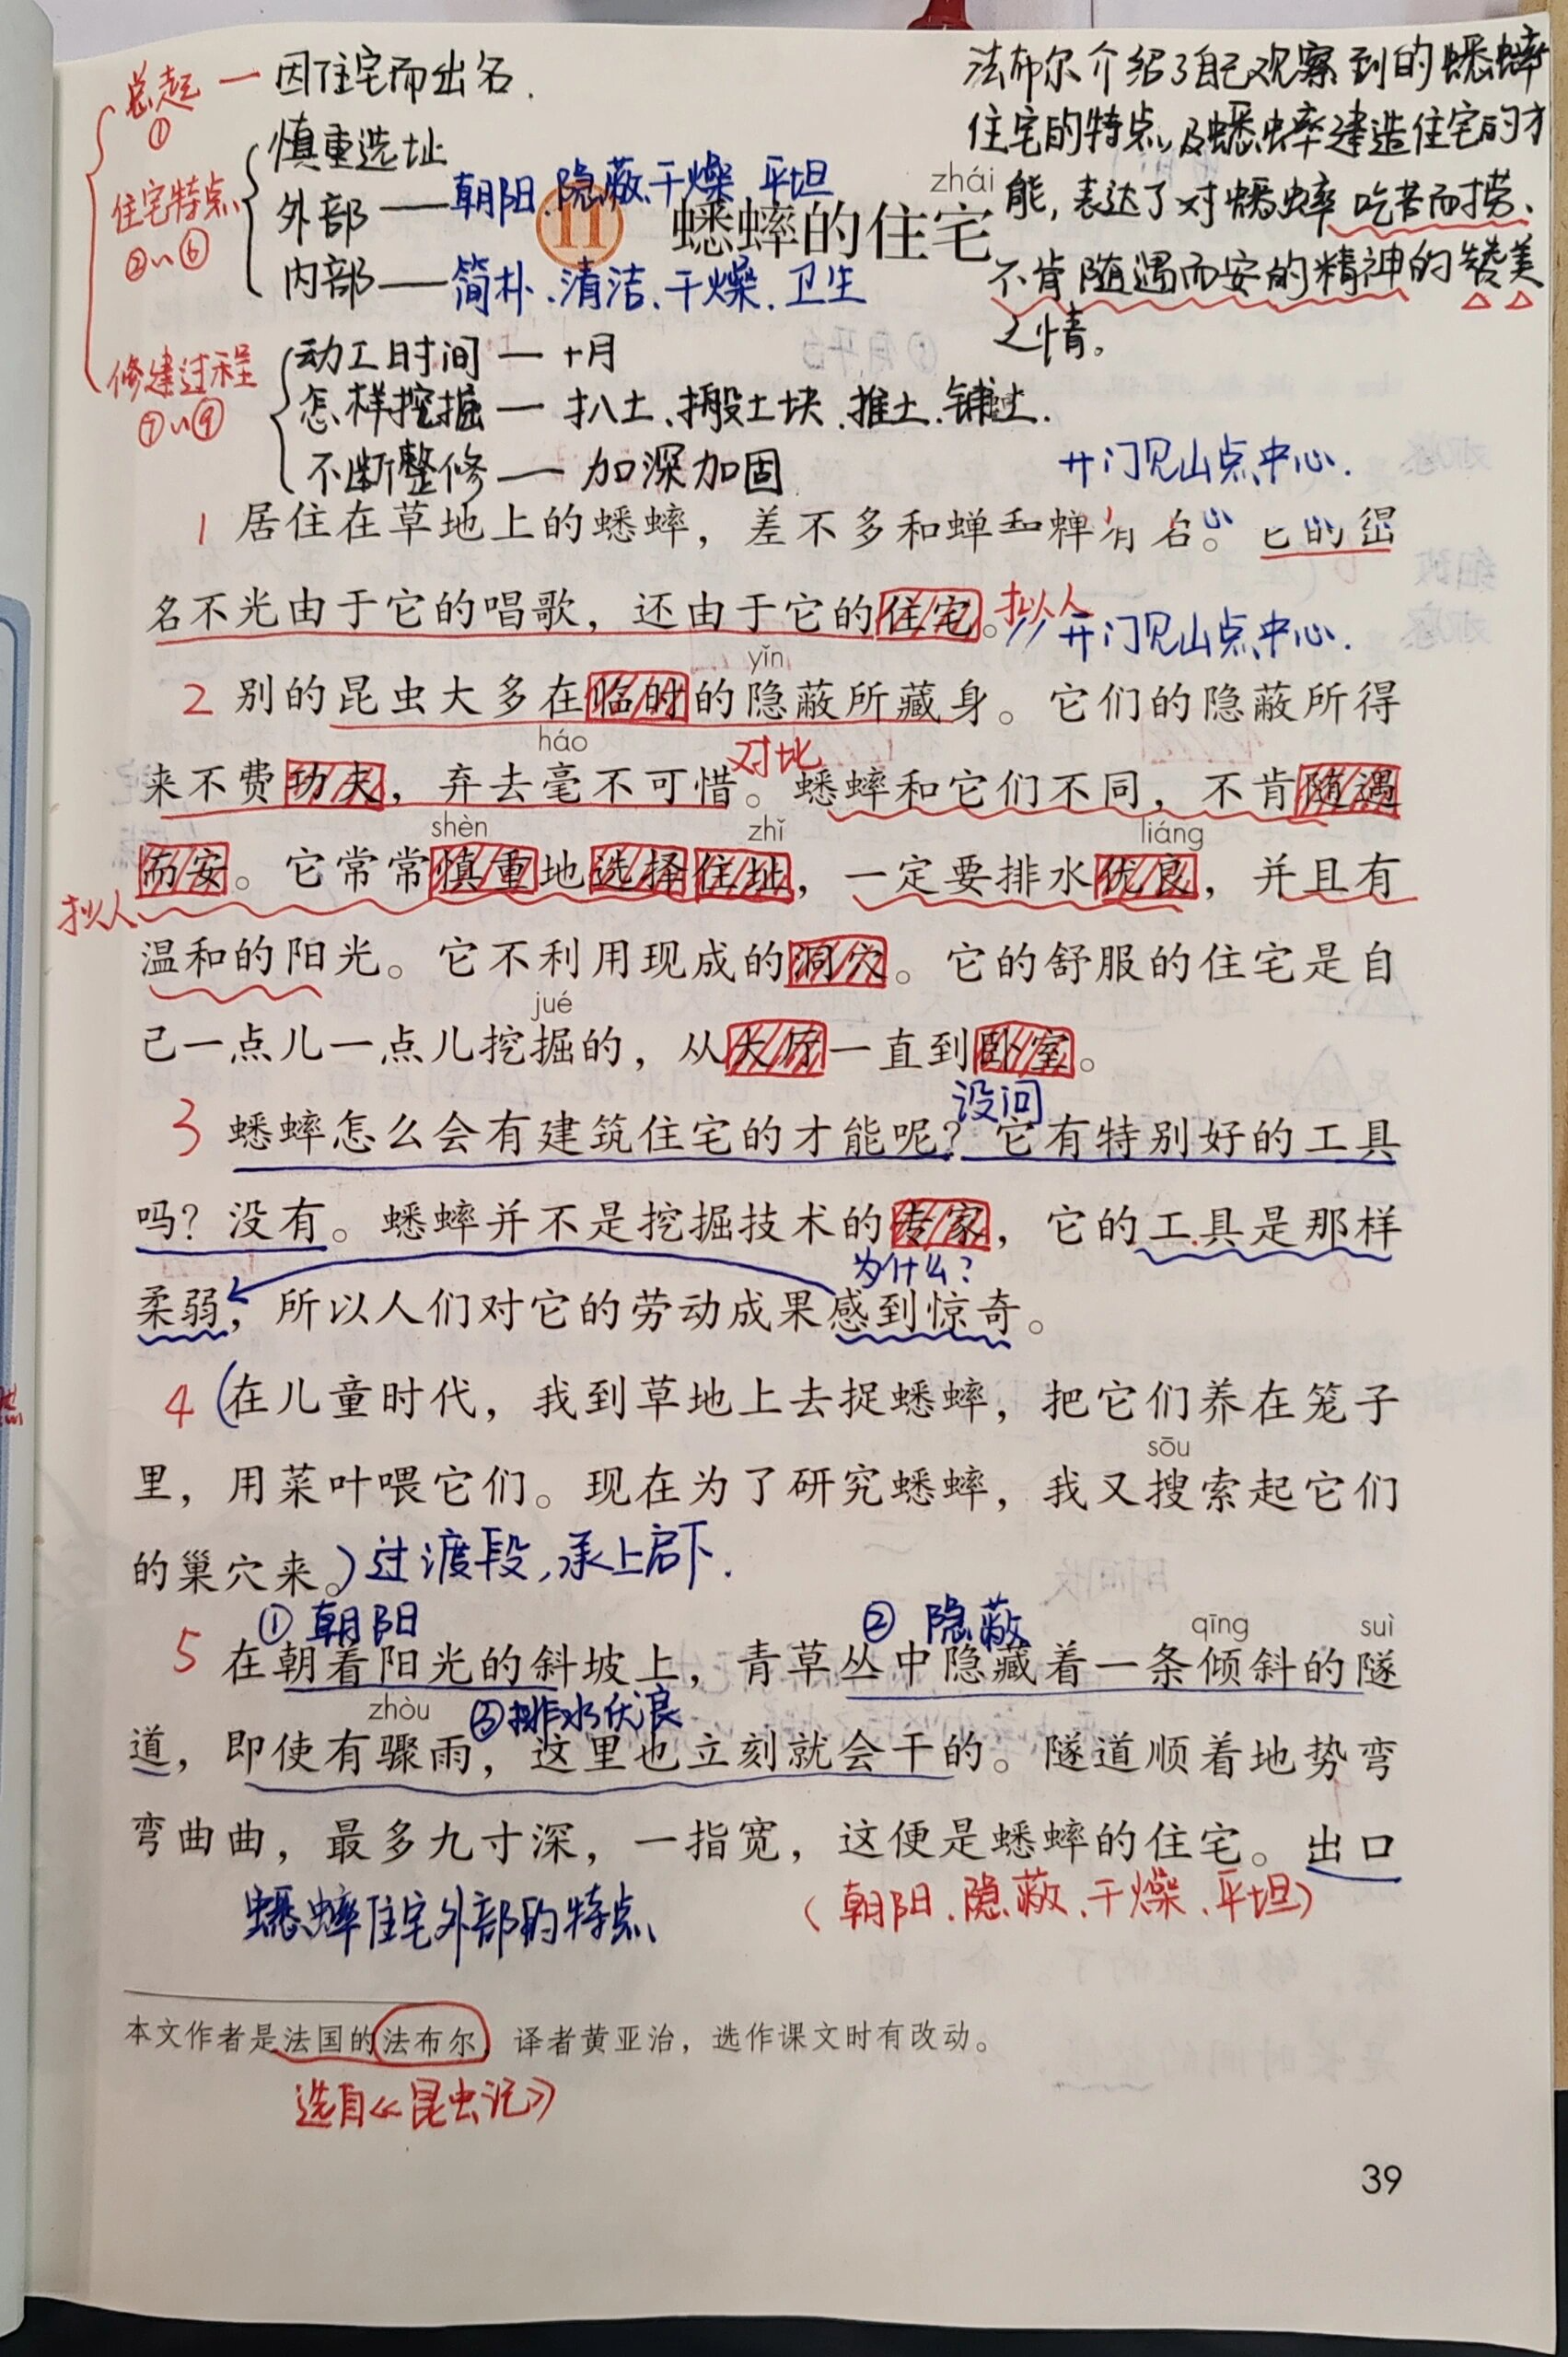 总起 — 因住宅而出名.
①
慎重选址
住宅特点 外部 — 朝阳、隐蔽、干燥、平坦
②~⑥
内部 — 简朴、清洁、干燥、卫生
法布尔介绍了自己观察到的蟋蟀
住宅的特点,及蟋蟀建造住宅的才
能,表达了对蟋蟀吃苦而劳、
不肯随遇而安的精神的赞美
之情。
zhái
11 蟋蟀的住宅
修建过程 动工时间 — 十月
⑦~⑨ 怎样挖掘 — 扒土、搬土块、推土、铺土.
不断整修 — 加深加固
开门见山点中心.
1 居住在草地上的蟋蟀，差不多和蝉和蝉有名。它的出
名不光由于它的唱歌，还由于它的住宅。拟人 开门见山点中心.
yǐn
2 别的昆虫大多在临时的隐蔽所藏身。它们的隐蔽所得
háo 对比
来不费功夫，弃去毫不可惜。蟋蟀和它们不同，不肯随遇
shèn zhǐ liáng
而安。它常常慎重地选择住址，一定要排水优良，并且有
拟人
温和的阳光。它不利用现成的洞穴。它的舒服的住宅是自
jué
己一点儿一点儿挖掘的，从大厅一直到卧室。
设问
3 蟋蟀怎么会有建筑住宅的才能呢？它有特别好的工具
吗？没有。蟋蟀并不是挖掘技术的专家，它的工具是那样
为什么?
柔弱，所以人们对它的劳动成果感到惊奇。
4 (在儿童时代，我到草地上去捉蟋蟀，把它们养在笼子
sōu
里，用菜叶喂它们。现在为了研究蟋蟀，我又搜索起它们
的巢穴来。)过渡段,承上启下.
①朝阳 ②隐蔽 qīng suì
5 在朝着阳光的斜坡上，青草丛中隐藏着一条倾斜的隧
zhòu ③排水优浪
道，即使有骤雨，这里也立刻就会干的。隧道顺着地势弯
弯曲曲，最多九寸深，一指宽，这便是蟋蟀的住宅。出口
蟋蟀住宅外部的特点 (朝阳、隐蔽、干燥、平坦)
本文作者是法国的法布尔，译者黄亚治，选作课文时有改动。
选自《昆虫记》
39